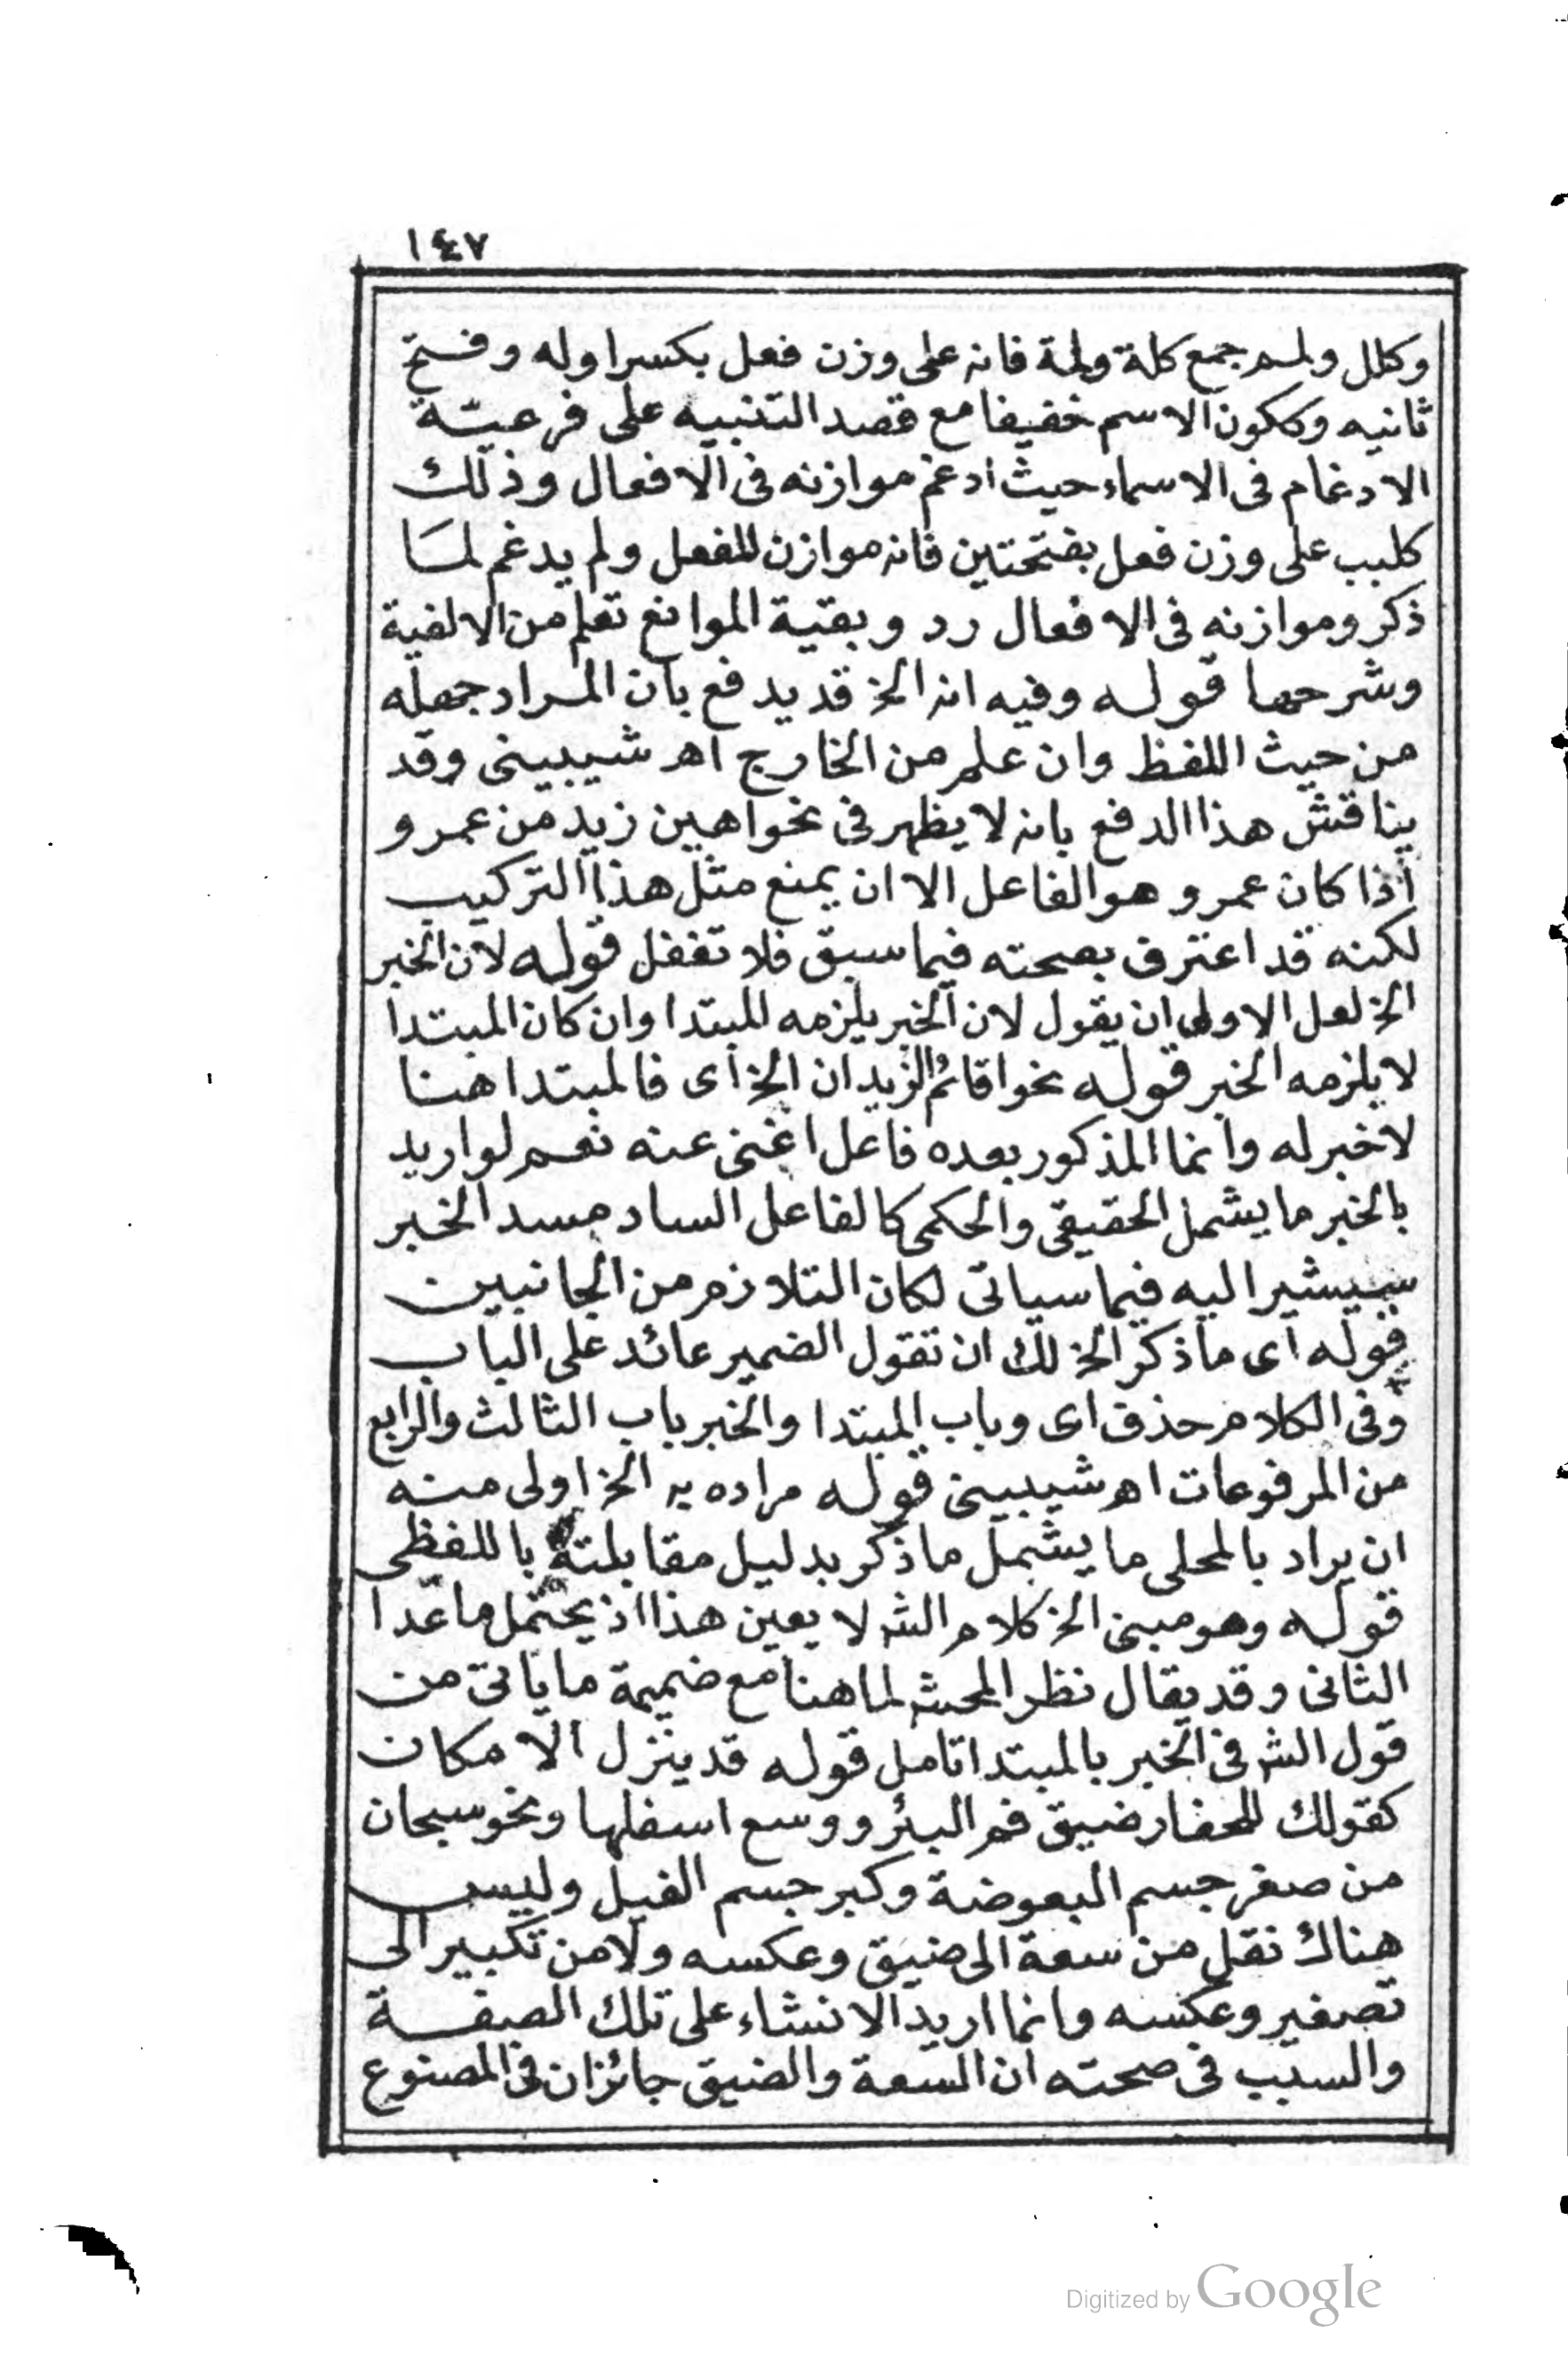 ١٤٧
وكلل ولمم جمع كلة ولمة فانه على وزن فعل بكسر اوله وفتح
ثانيه وككون الاسم خفيفا مع قصد التنبيه على فرعيّة
الادغام فى الاسماء حيث ادغم موازنه فى الافعال وذلك
كلبب على وزن فعل بفتحتين فانه موازن للفعل ولم يدغم لما
ذكر وموازنه فى الافعال رد وبقية الموانع تعلم من الالفية
وشرحها قوله وفيه انه الخ قد يدفع بان المراد جهله
من حيث اللفظ وان علم من الخارج اهـ شيبينى وقد
يناقش هذا الدفع بانه لا يظهر فى نحو اهين زيد من عمرو
اذا كان عمرو هو الفاعل الا ان يمنع مثل هذا التركيب
لكنه قد اعترف بصحته فيما سبق فلا تغفل قوله لان الخبر
الخ لعل الاولى ان يقول لان الخبر يلزمه المبتدا وان كان المبتدا
لا يلزمه الخبر قوله نحو اقائمٌ الزيدان الخ أى فالمبتدا هنا
لا خبر له وانما المذكور بعده فاعل اغنى عنه نعم لو اريد
بالخبر ما يشمل الحقيقى والحكمى كالفاعل الساد مسد الخبر
سيشير اليه فيما سياتى لكان التلازم من الجانبين
قوله اى ما ذكر الخ لك ان تقول الضمير عائد على الباب
وفى الكلام حذف اى وباب المبتدا والخبر باب الثالث والرابع
من المرفوعات اهـ شيبينى قوله مراده به الخ اولى منه
ان يراد بالمحلى ما يشمل ما ذكر بدليل مقابلته باللفظى
قوله وهو مبنى الخ كلام الشـ لا يعين هذا اذ يحتمل ما عدا
الثانى وقد يقال نظر المحشـ لما هنا مع ضميمة ما ياتى من
قول الشـ فى الخبر بالمبتدا تامل قوله قد ينزل الامكان
كقولك للحفار ضيق فم البئر ووسع اسفلها ونحو سبحان
من صغر جسم البعوضة وكبر جسم الفيل وليس
هناك نقل من سعة الى ضيق وعكسه ولا من تكبير الى
تصغير وعكسه وانما اريد الانشاء على تلك الصفة
والسبب فى صحته ان السعة والضيق جائزان فى المصنوع
Digitized by Google